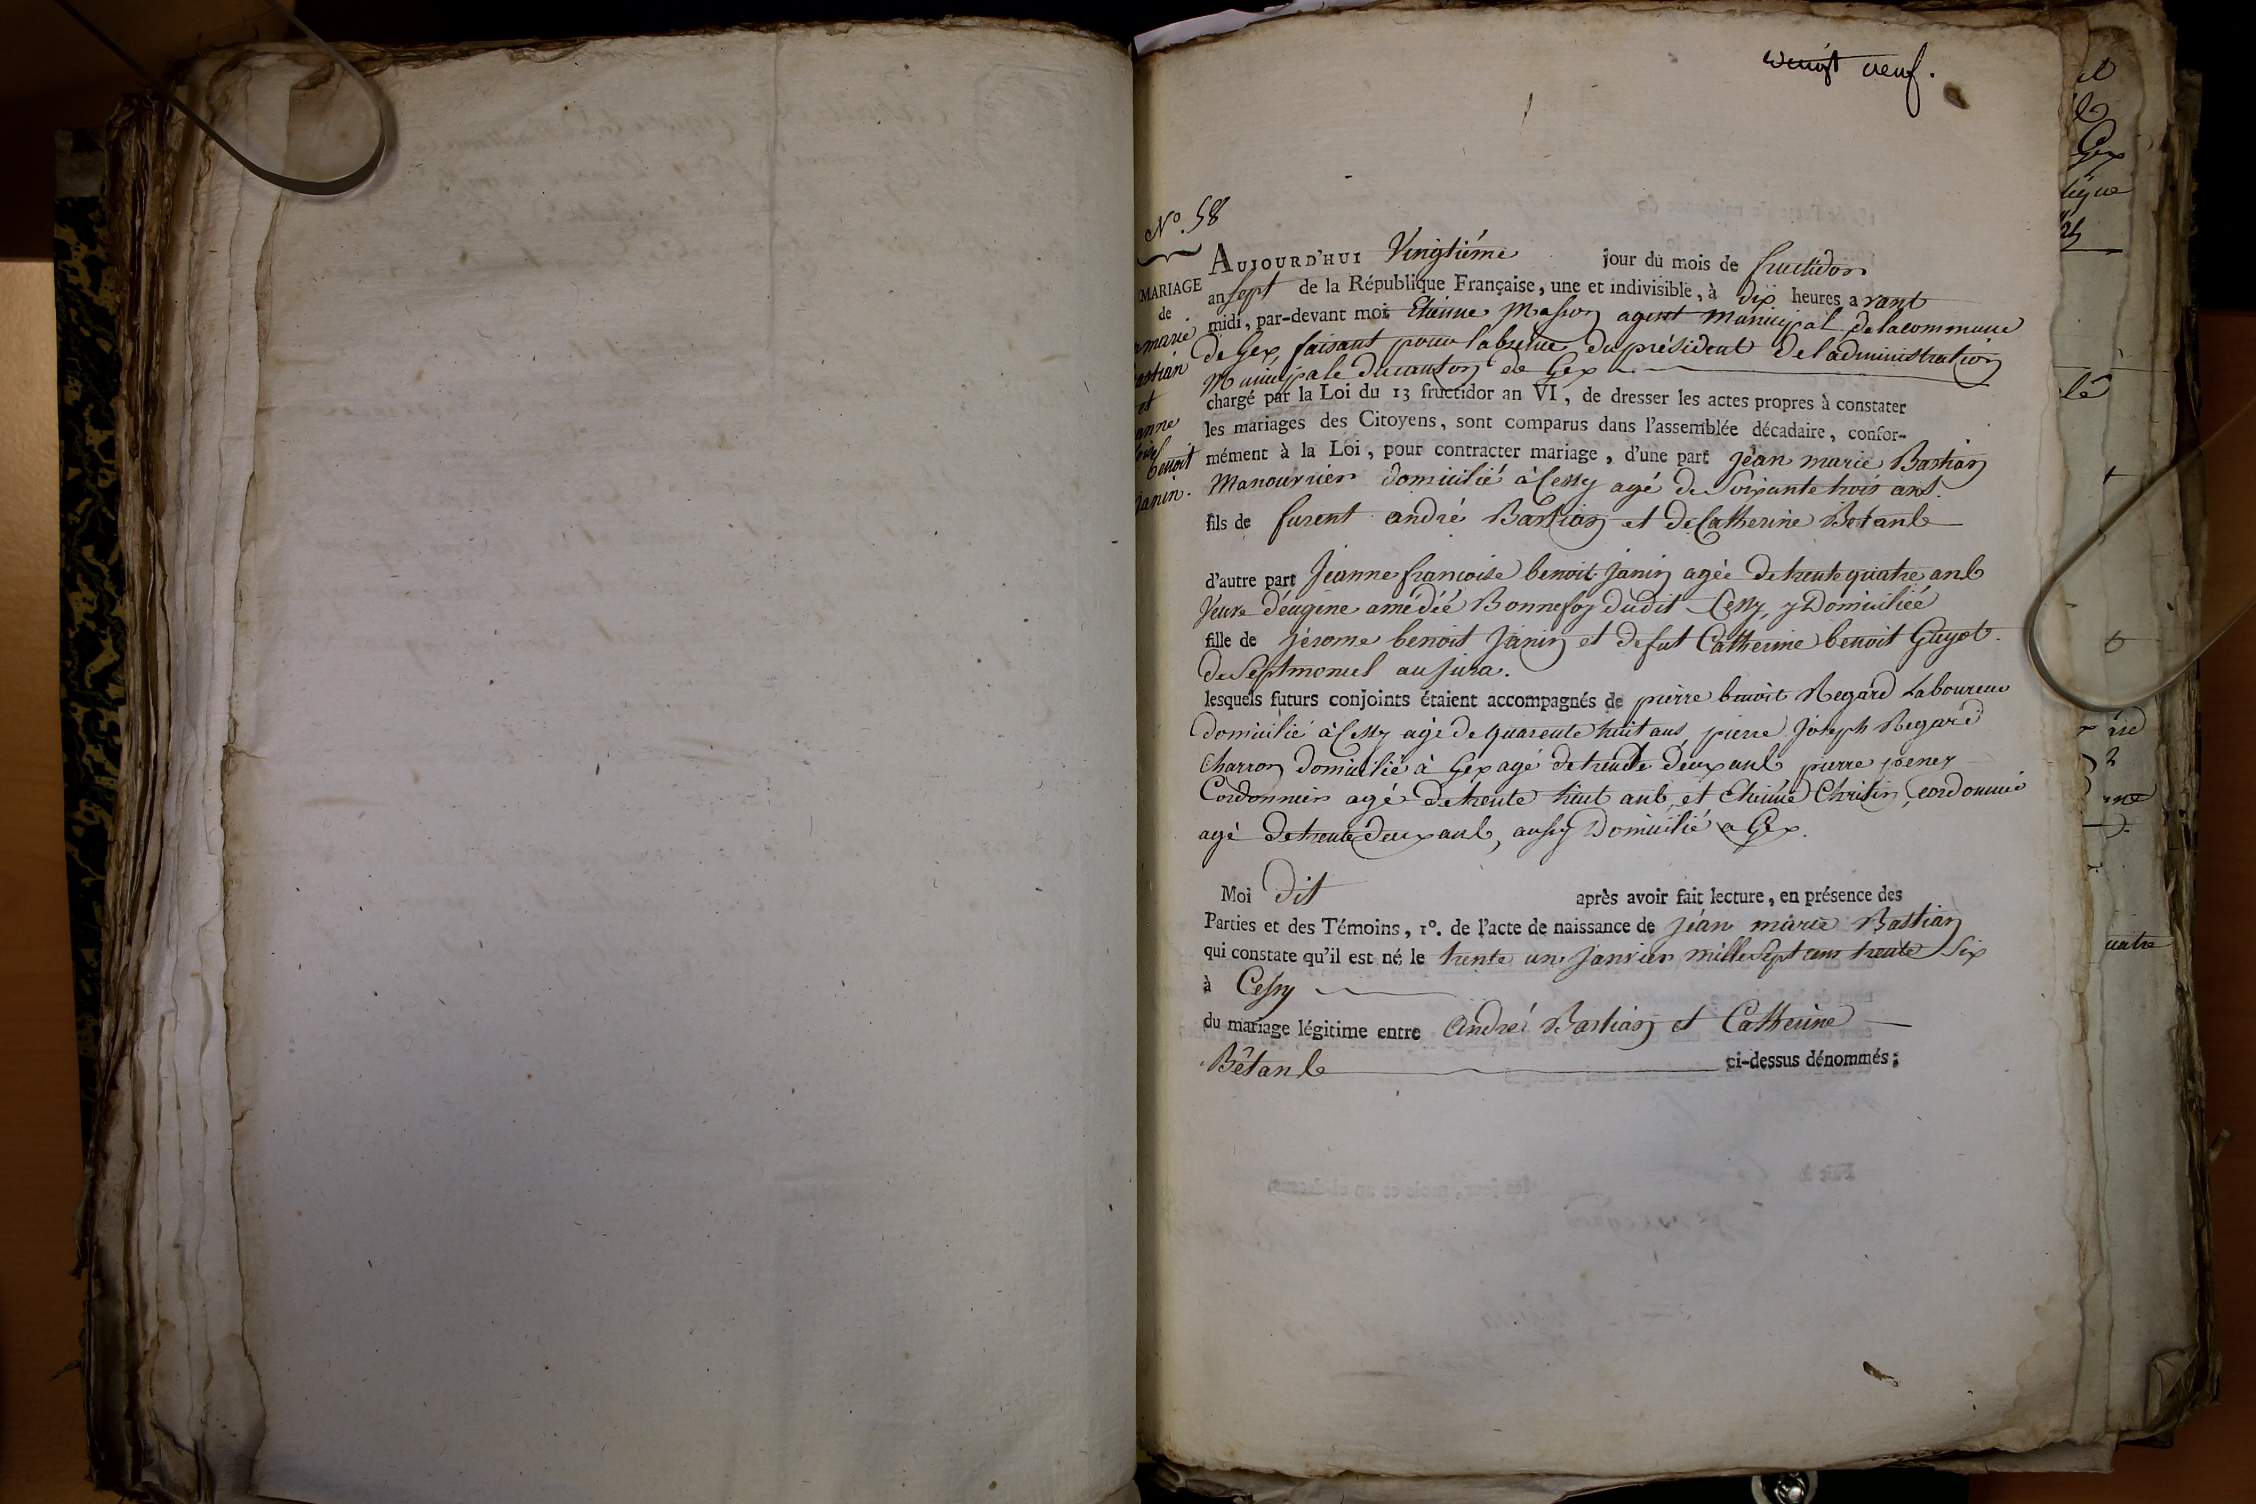 vingt neuf.
N.° 58
MARIAGE
de
marie
astian
et
anne
benoit
Janin.
AUJOURD'HUI Vingtiéme jour du mois de fructidor
an sept de la République Française, une et indivisible, à dix heures avant
midi, par-devant moi Etienne Masson agent municipal de la commune
de Gex, faisant pour l'absence du président de l'administration
Municipale du canton de Gex
chargé par la Loi du 13 fructidor an VI, de dresser les actes propres à constater
les mariages des Citoyens, sont comparus dans l'assemblée décadaire, confor-
mément à la Loi, pour contracter mariage, d'une part jéan marie Bastian
Manouvrier domicilié à Cessy agé de soixante trois ans.
fils de furent andré Bastian et de Catherine Bétanb
d'autre part Jéanne francoise benoit Janin agée de trente quatre ans
Veuve d'éugéne amédéé Bonnefoy dudit Cessy, y Domiciliée
fille de jérome benoit Janin et de fut Catherine benoit Guyot.
de Septmoncel au jura.
lesquels futurs conjoints étaient accompagnés de pierre benoit Regard Laboureur
domicilié à Cessy agé de quarente huit ans, pierre Joseph Regard
Charron domicilié à Géx agé de trente deux ans pierre
Cordonnier agé de trente huit ans, et Etienne Christin, cordonnié
agé de trente deux ans, aussy Domicilié a Gex.
Moi dit après avoir fait lecture, en présence des
Parties et des Témoins, 1°. de l'acte de naissance de jéan marie Bastian
qui constate qu'il est né le trente un janvier mille sept cens trente six
à Cessy
du mariage légitime entre André Bastian et Catherine
Bétanb ci-dessus dénommés;
Gex
uatre